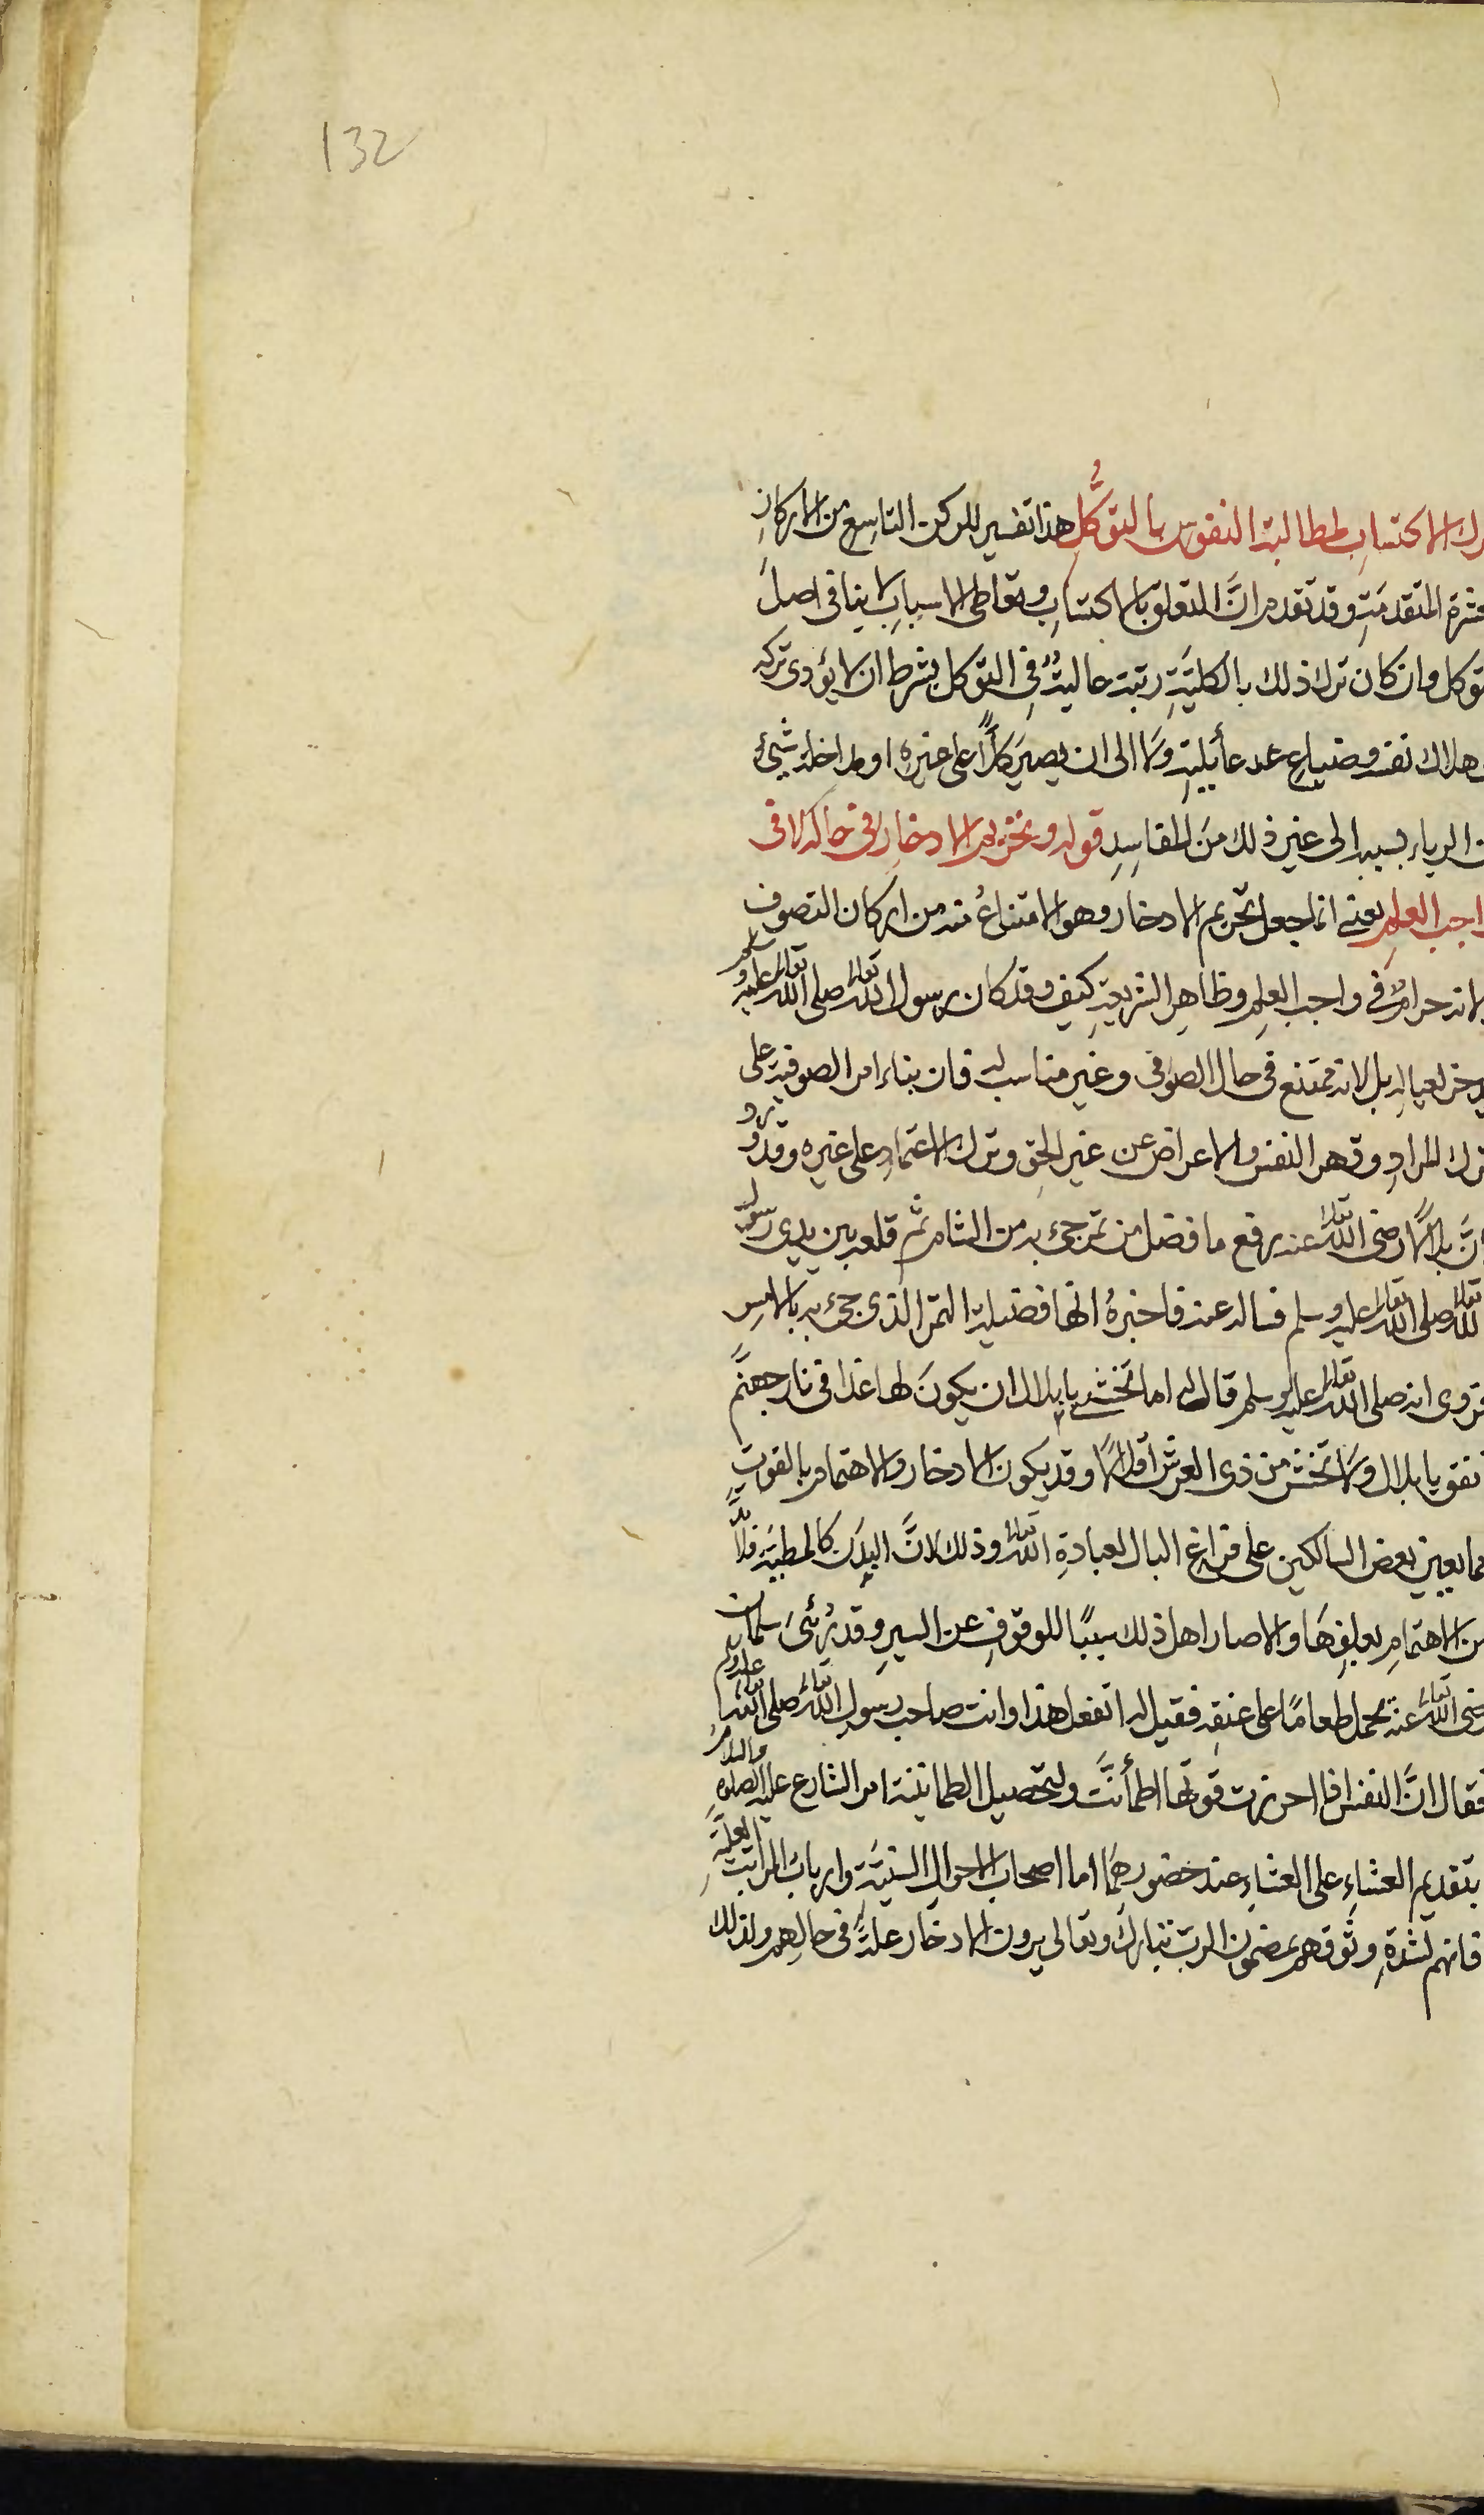 132
ترك الاكتساب لمطالبة النفوس بالتوكل هذا تفسير للركن التاسع من الاركان
العشرة المتقدمة وقد تقدم ان التعلق بالاكتساب وتعاطى الاسباب لا ينافى اصل
التوكل وان كان ترك ذلك بالكلية رتبة عالية فى التوكل بشرط ان لا يؤدى تركه
هلاك نفسه وضياع عائلته ولا الى ان يصير كلاًّ على غيره او لمداخلة شيئ
من الرياء بسببه الى غير ذلك من المفاسد قوله وتحريم الادخار فى حاله لا فى
واجب العلم يعنى انما جعل تحريم الادخار وهو الامتناع منه من اركان التصوف
لا انه حرام فى واجب العلم وظاهر الشريعة كيف وقد كان رسول الله تعالى صلى الله تعالى عليه وسلم
يدخر لعياله بل لانه ممتنع فى حال الصوفى وغير مناسب له فان بناء امر الصوفية على
ترك المراد وقهر النفس والاعراض عن غير الحق وترك الاعتماد على غيره وقد
ان بلالاً رضى الله تعالى عنه رفع ما فضل من تمر جيء به من الشام ثم قلعه بين يدى رسول
الله تعالى صلى الله تعالى عليه وسلم فساله عنه فاخبره انها فضيلة التمر الذى جيء به بالامس
فروى انه صلى الله تعالى عليه وسلم قال له اما تخشى يا بلال ان يكون لها غدا فى نار جهنم
انفق يا بلال ولا تخش من ذى العرش اقلالاً وقد يكون الادخار والاهتمام بالقوت
مما يعين بعض السالكين على فراغ البال لعبادة الله تعالى وذلك لان البدن كالمطية فلا بد
من الاهتمام بعلفها والا صار اهل ذلك سببًا للوقوف عن السير وقد رُئى سلمان
رضى الله تعالى عنه يحمل طعامًا على عنقه فقيل له اتفعل هذا وانت صاحب رسول الله تعالى صلى الله تعالى عليه وسلم
فقال ان النفس اذا احرزت قوتها اطمأنت ولتحصيل الطمانينة امر الشارع عليه الصلوة والسلام
بتقديم العشاء على العشاء عند حضورهما اما اصحاب الاحوال السنية وارباب المراتب العلية
فانهم لشدة وثوقهم بمضمون الرب تبارك وتعالى يرون الادخار علة فى حالهم ولذلك